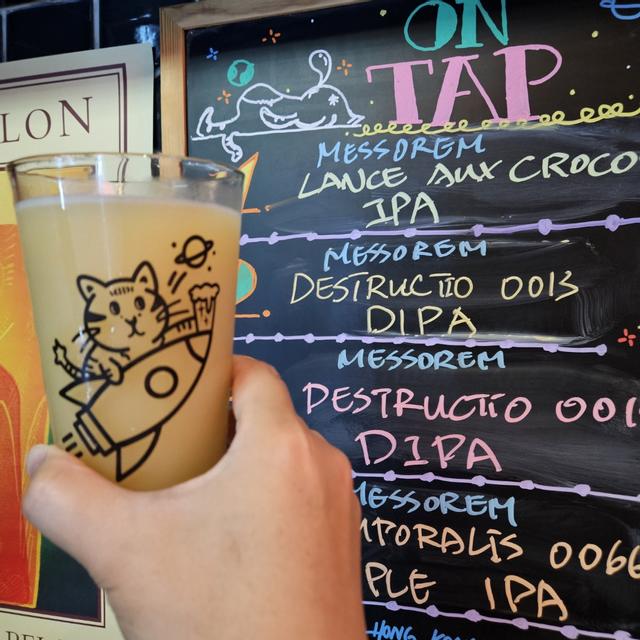 LON
ON
TAP
MESSOREM
LANCE AUX CROCO
IPA
MESSOREM
DESTRUCTIO 0013
DIPA
MESSOREM
DESTRUCTIO 001
DIPA
MESSOREM
MPORALIS 0066
PLE IPA
HONG